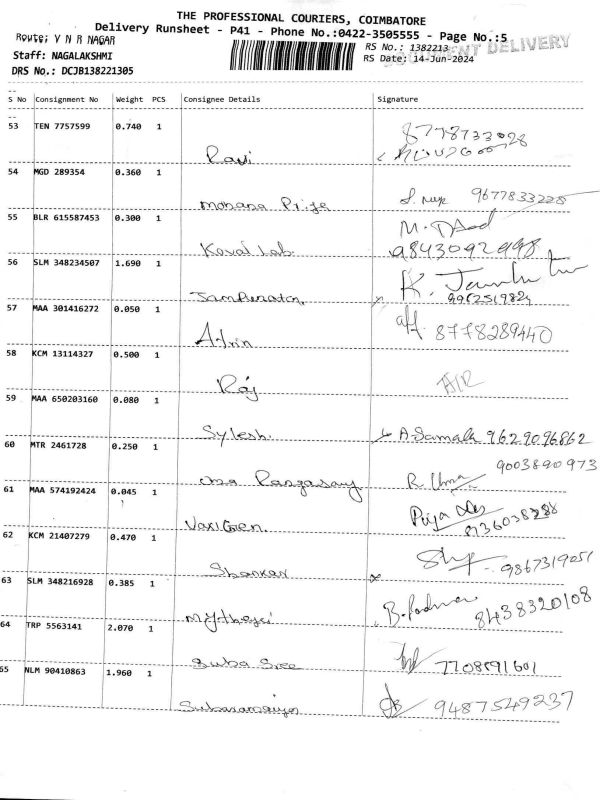 THE PROFESSIONAL COURIERS, COIMBATORE
Delivery Runsheet - P41 - Phone No.:0422-3505555 - Page No.:5
Route: V N R NAGAR
RS No.: 1382213
DELIVERY
Staff: NAGALAKSHMI
RS Date: 14-Jun-2024
DRS No.: DCJB138221305
S No Consignment No Weight PCS Consignee Details Signature
53 TEN 7757599 0.740 1
Ravi
54 MGD 289354 0.360 1
Mohana Priya 9677833225
55 BLR 615587453 0.300 1
Kovai Lab 9843092998
56 SLM 348234507 1.690 1
K.
57 MAA 301416272 0.050 1
8778289440
58 KCM 13114327 0.500 1
Raj
59 MAA 650203160 0.080 1
Sylesh. A. Samala 9629096862
60 MTR 2461728 0.250 1
9003890973
Uma Rangasamy R. Uma
61 MAA 574192424 0.045 1
Priya
62 KCM 21407279 0.470 1
Shankar 9867319051
63 SLM 348216928 0.385 1
8438320108
64 TRP 5563141 2.070 1
Suba Sree 7708591601
65 NLM 90410863 1.960 1
9487549237